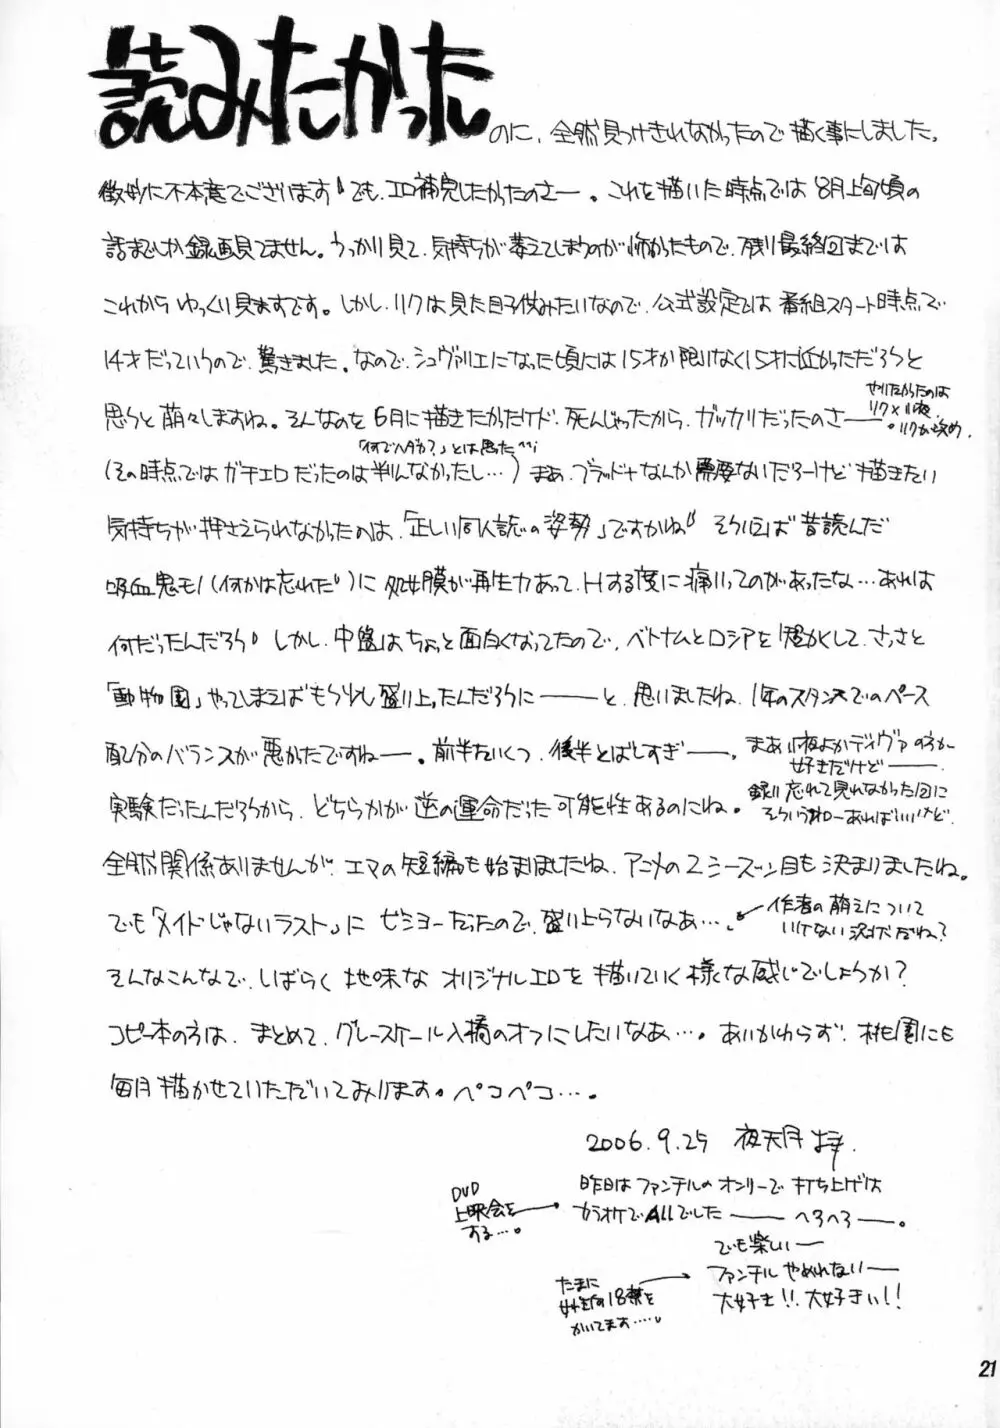 読みたかった
のに、全然見つけきれなかったので描く事にしました。
微妙に不本意でございます でも、エロ補完したかたのさー。これを描いた時点では '8月上旬頃の
話までしか録画見てません。うっかり見て、気持ちが萎えてしまうのが怖かたもので、残り最終回までは
これから ゆっくり見ますです。しかし、リクは見た目子供みたいなので、公式設定では 番組スタート時点で
14才だっていうので、驚きました。なので、シュヴァリエになった頃には15才か限りなく15才に近かっただろうと
やりたかったのは
リク×小夜
。リクが攻め。
思うと萌々しますね。そんなのを 6月に描きたかたけど、死んじゃったから、ガッカリだったのさー
「何でヘタか?」とは思た^^;
(その時点ではガチエロだったのは判んなかったし…) まぁ、ブラッド+なんか需要ないだろーけど 描きたい
気持ちが押さえられなかたのは、「正しい同人誌の姿勢」ですかね そういえば 昔読んだ
吸血鬼モノ(何かは忘れた)に 処女膜が再生力あって、Hする度に痛いってのがあったな…あれは
何だったんだろう しかし、中盤はちょっと面白くなってたので、ベトナムとロシアを短かくして、さっさと
「動物園」やってしまえばもう少し盛り上ったんだろうに――と、思いましたね、1年のスタンスでのペース
配分のバランスが悪かたですねー。前半たいくつ、後半とばしすぎー、
まあ小夜よかディヴァの方が
好きだけどー
実験だったんだろうから、どちらかが 逆の運命だった可能性あるのにね。
録り忘れて見れなかった回に
そういうネローあればいいけど。
全然関係ありませんが、エマの短編も始まりましたね、アニメの2シーズン目も決まりましたね。
でも「メイドじゃないラスト」に ゼミヨーだったので、盛り上らないなあ…。
作者の萌えについて
いけない状況だね?
そんなこんなで、しばらく 地味な オリジナルエロを 描いていく様な感じでしょうか?
コピー本の方は、まとめて、グレースケール入稿のオフにしたいなあ…。あいかわらず、桃園にも
毎月描かせていただいております。ペコペコ…。
2006.9.25 夜天月 拝.
DVD
上映会を
する…。
昨日は ファンテルの オンリーで 打ち上げは
カラオケでAllでした―― へろへろー。
でも楽しいー
ファンテル やめれないー
大好き!! 大好きぃ!!
たまに
女性向の18禁を
かいてます…。
21